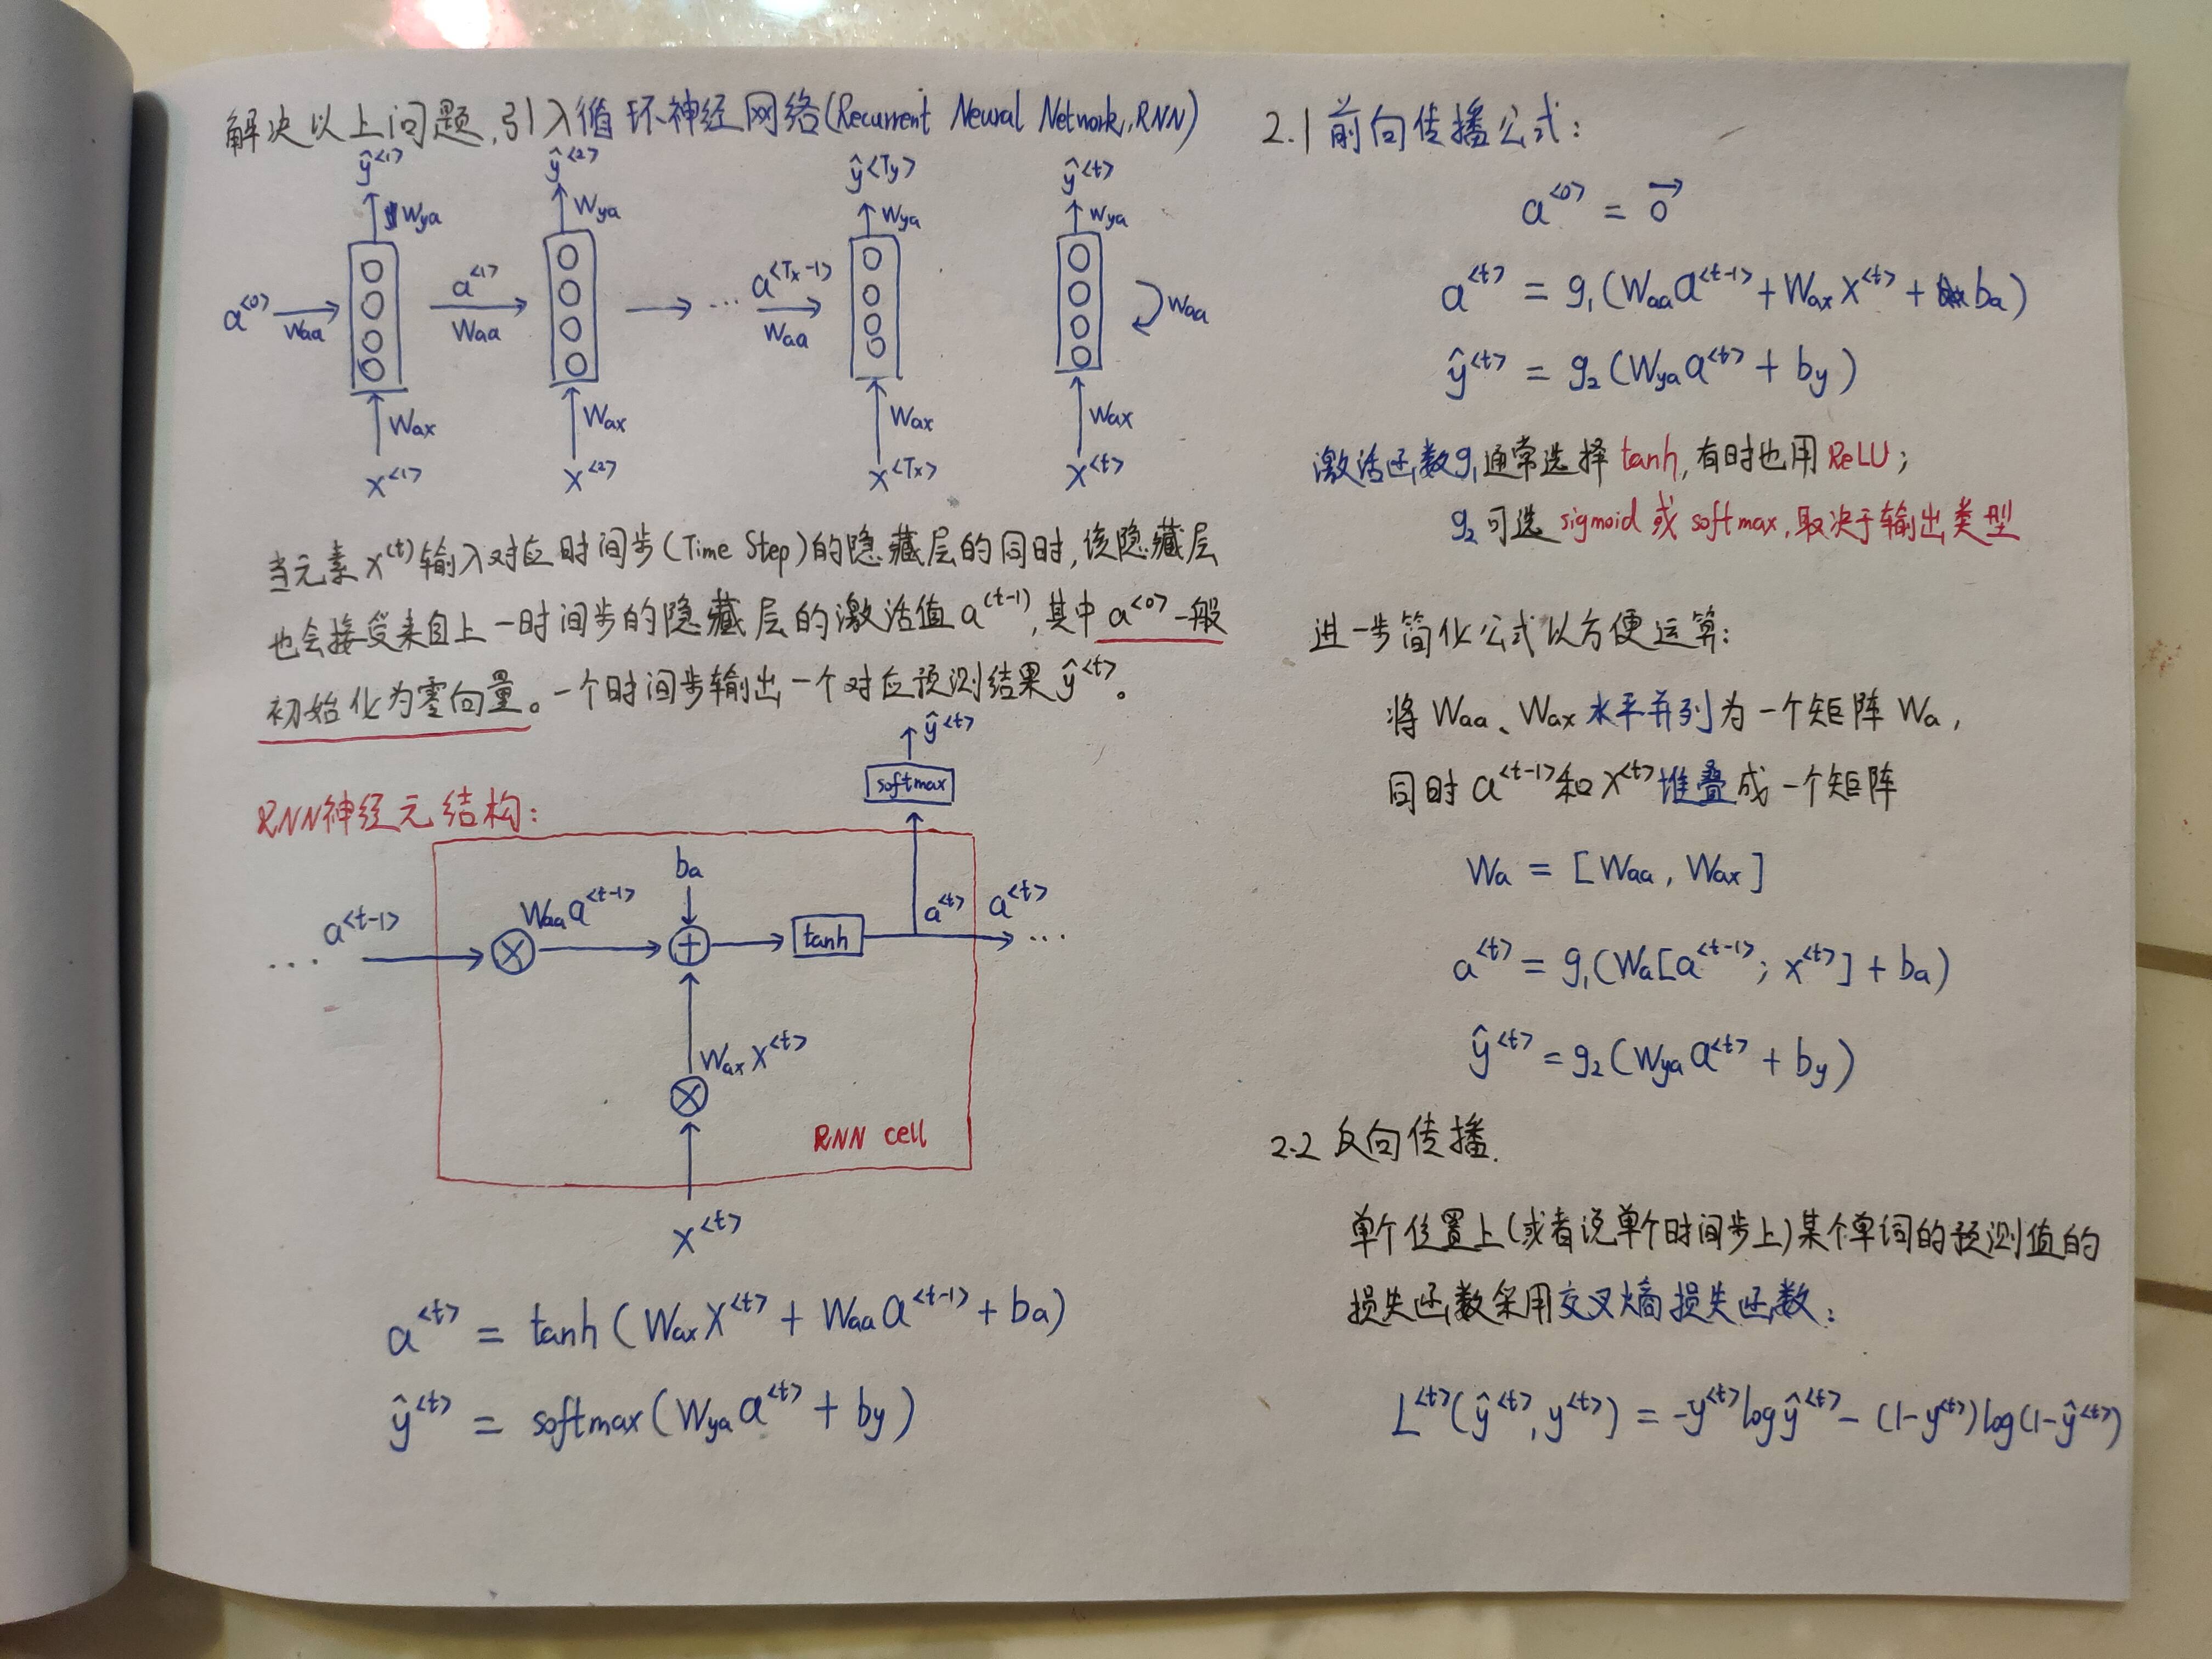 解决以上问题,引入循环神经网络(Recurrent Neural Network,RNN)
ŷ<1> ŷ<2> ŷ<Ty> ŷ<t>
Wya Wya Wya Wya
a<0> Waa a<1> Waa ... a<Tx-1> Waa Waa
Wax Wax Wax Wax
x<1> x<2> x<Tx> x<t>
当元素x(t)输入对应时间步(Time Step)的隐藏层的同时,该隐藏层
也会接受来自上一时间步的隐藏层的激活值a(t-1),其中a<0>一般
初始化为零向量。一个时间步输出一个对应预测结果ŷ<t>。
RNN神经元结构:
ŷ<t>
softmax
ba
... a<t-1> ⊗ Waa a<t-1> ⊕ tanh a<t> a<t> ...
Wax x<t>
⊗
RNN cell
x<t>
a<t> = tanh(Wax x<t> + Waa a<t-1> + ba)
ŷ<t> = softmax(Wya a<t> + by)
2.1 前向传播公式:
a<0> = 0⃗
a<t> = g₁(Waa a<t-1> + Wax x<t> + ba)
ŷ<t> = g₂(Wya a<t> + by)
激活函数g₁通常选择tanh,有时也用ReLU;
g₂可选sigmoid或softmax,取决于输出类型
进一步简化公式以方便运算:
将Waa、Wax水平并列为一个矩阵Wa,
同时a<t-1>和x<t>堆叠成一个矩阵
Wa = [Waa, Wax]
a<t> = g₁(Wa[a<t-1>; x<t>] + ba)
ŷ<t> = g₂(Wya a<t> + by)
2.2 反向传播.
单个位置上(或者说单个时间步上)某个单词的预测值的
损失函数采用交叉熵损失函数:
L<t>(ŷ<t>, y<t>) = -y<t>logŷ<t> - (1-y<t>)log(1-ŷ<t>)